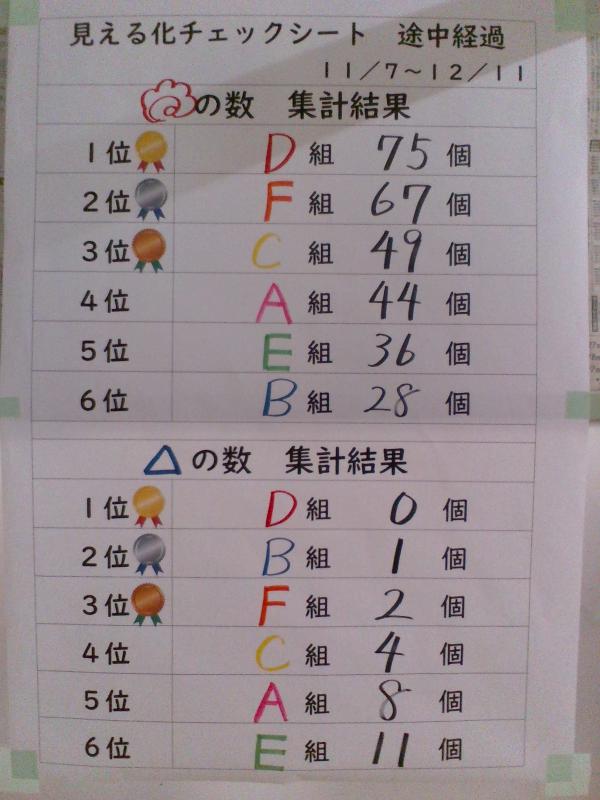 見える化チェックシート　途中経過
11／7～12／11
の数　集計結果
1位 D組 75個
2位 F組 67個
3位 C組 49個
4位 A組 44個
5位 E組 36個
6位 B組 28個
△の数　集計結果
1位 D組 0個
2位 B組 1個
3位 F組 2個
4位 C組 4個
5位 A組 8個
6位 E組 11個